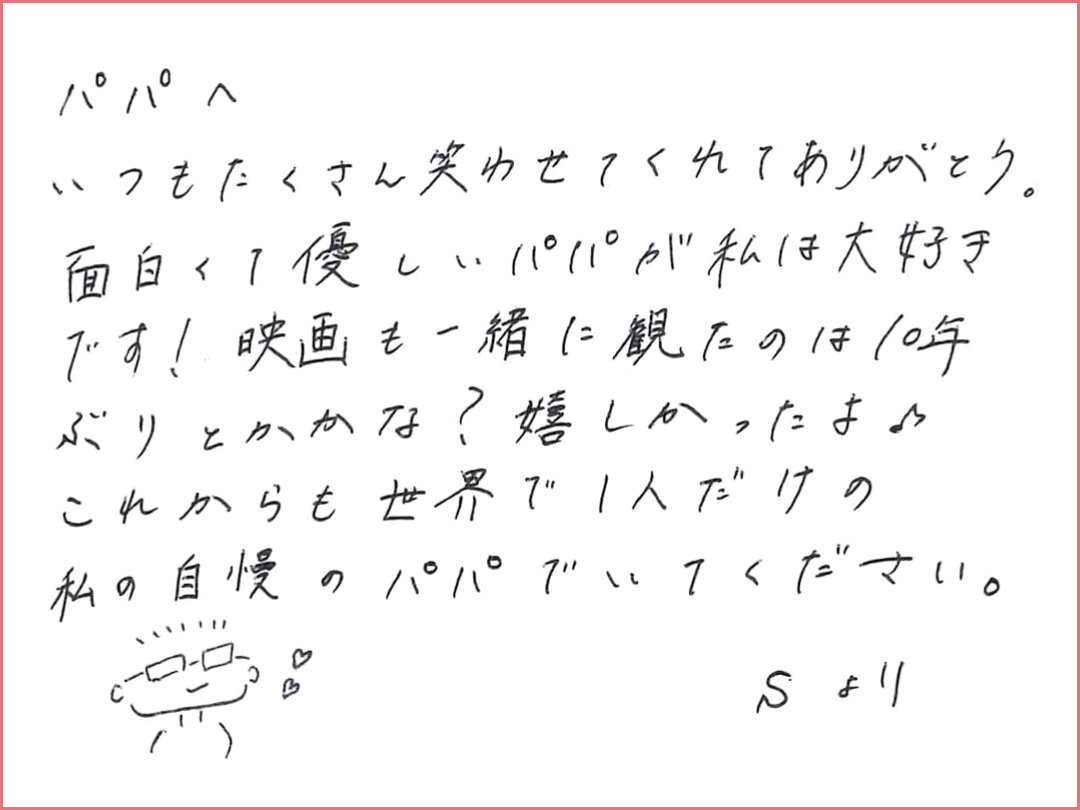 パパへ
いつもたくさん笑わせてくれてありがとう。
面白くて優しいパパが私は大好き
です!映画も一緒に観たのは10年
ぶりとかかな?嬉しかったよ♪
これからも世界で1人だけの
私の自慢のパパでいてください。
Sより